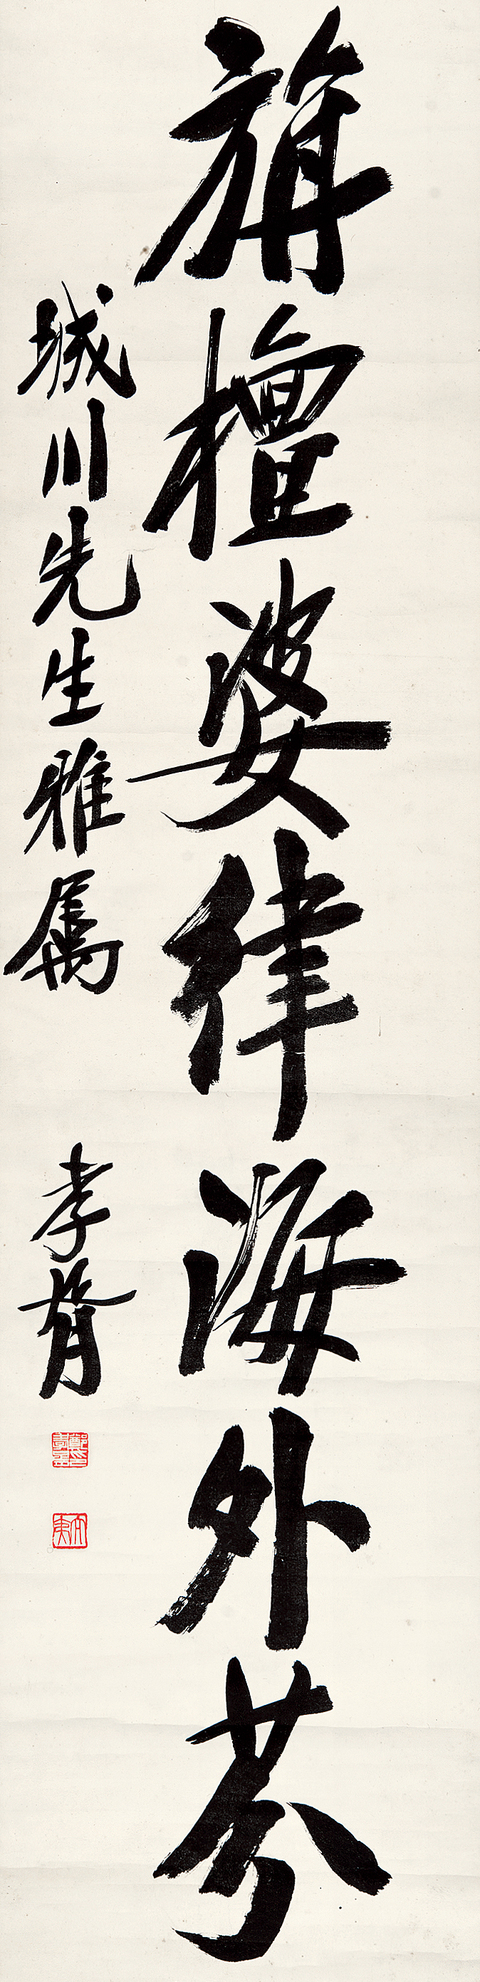 旃檀婆律海外芬
城川先生雅属
孝胥